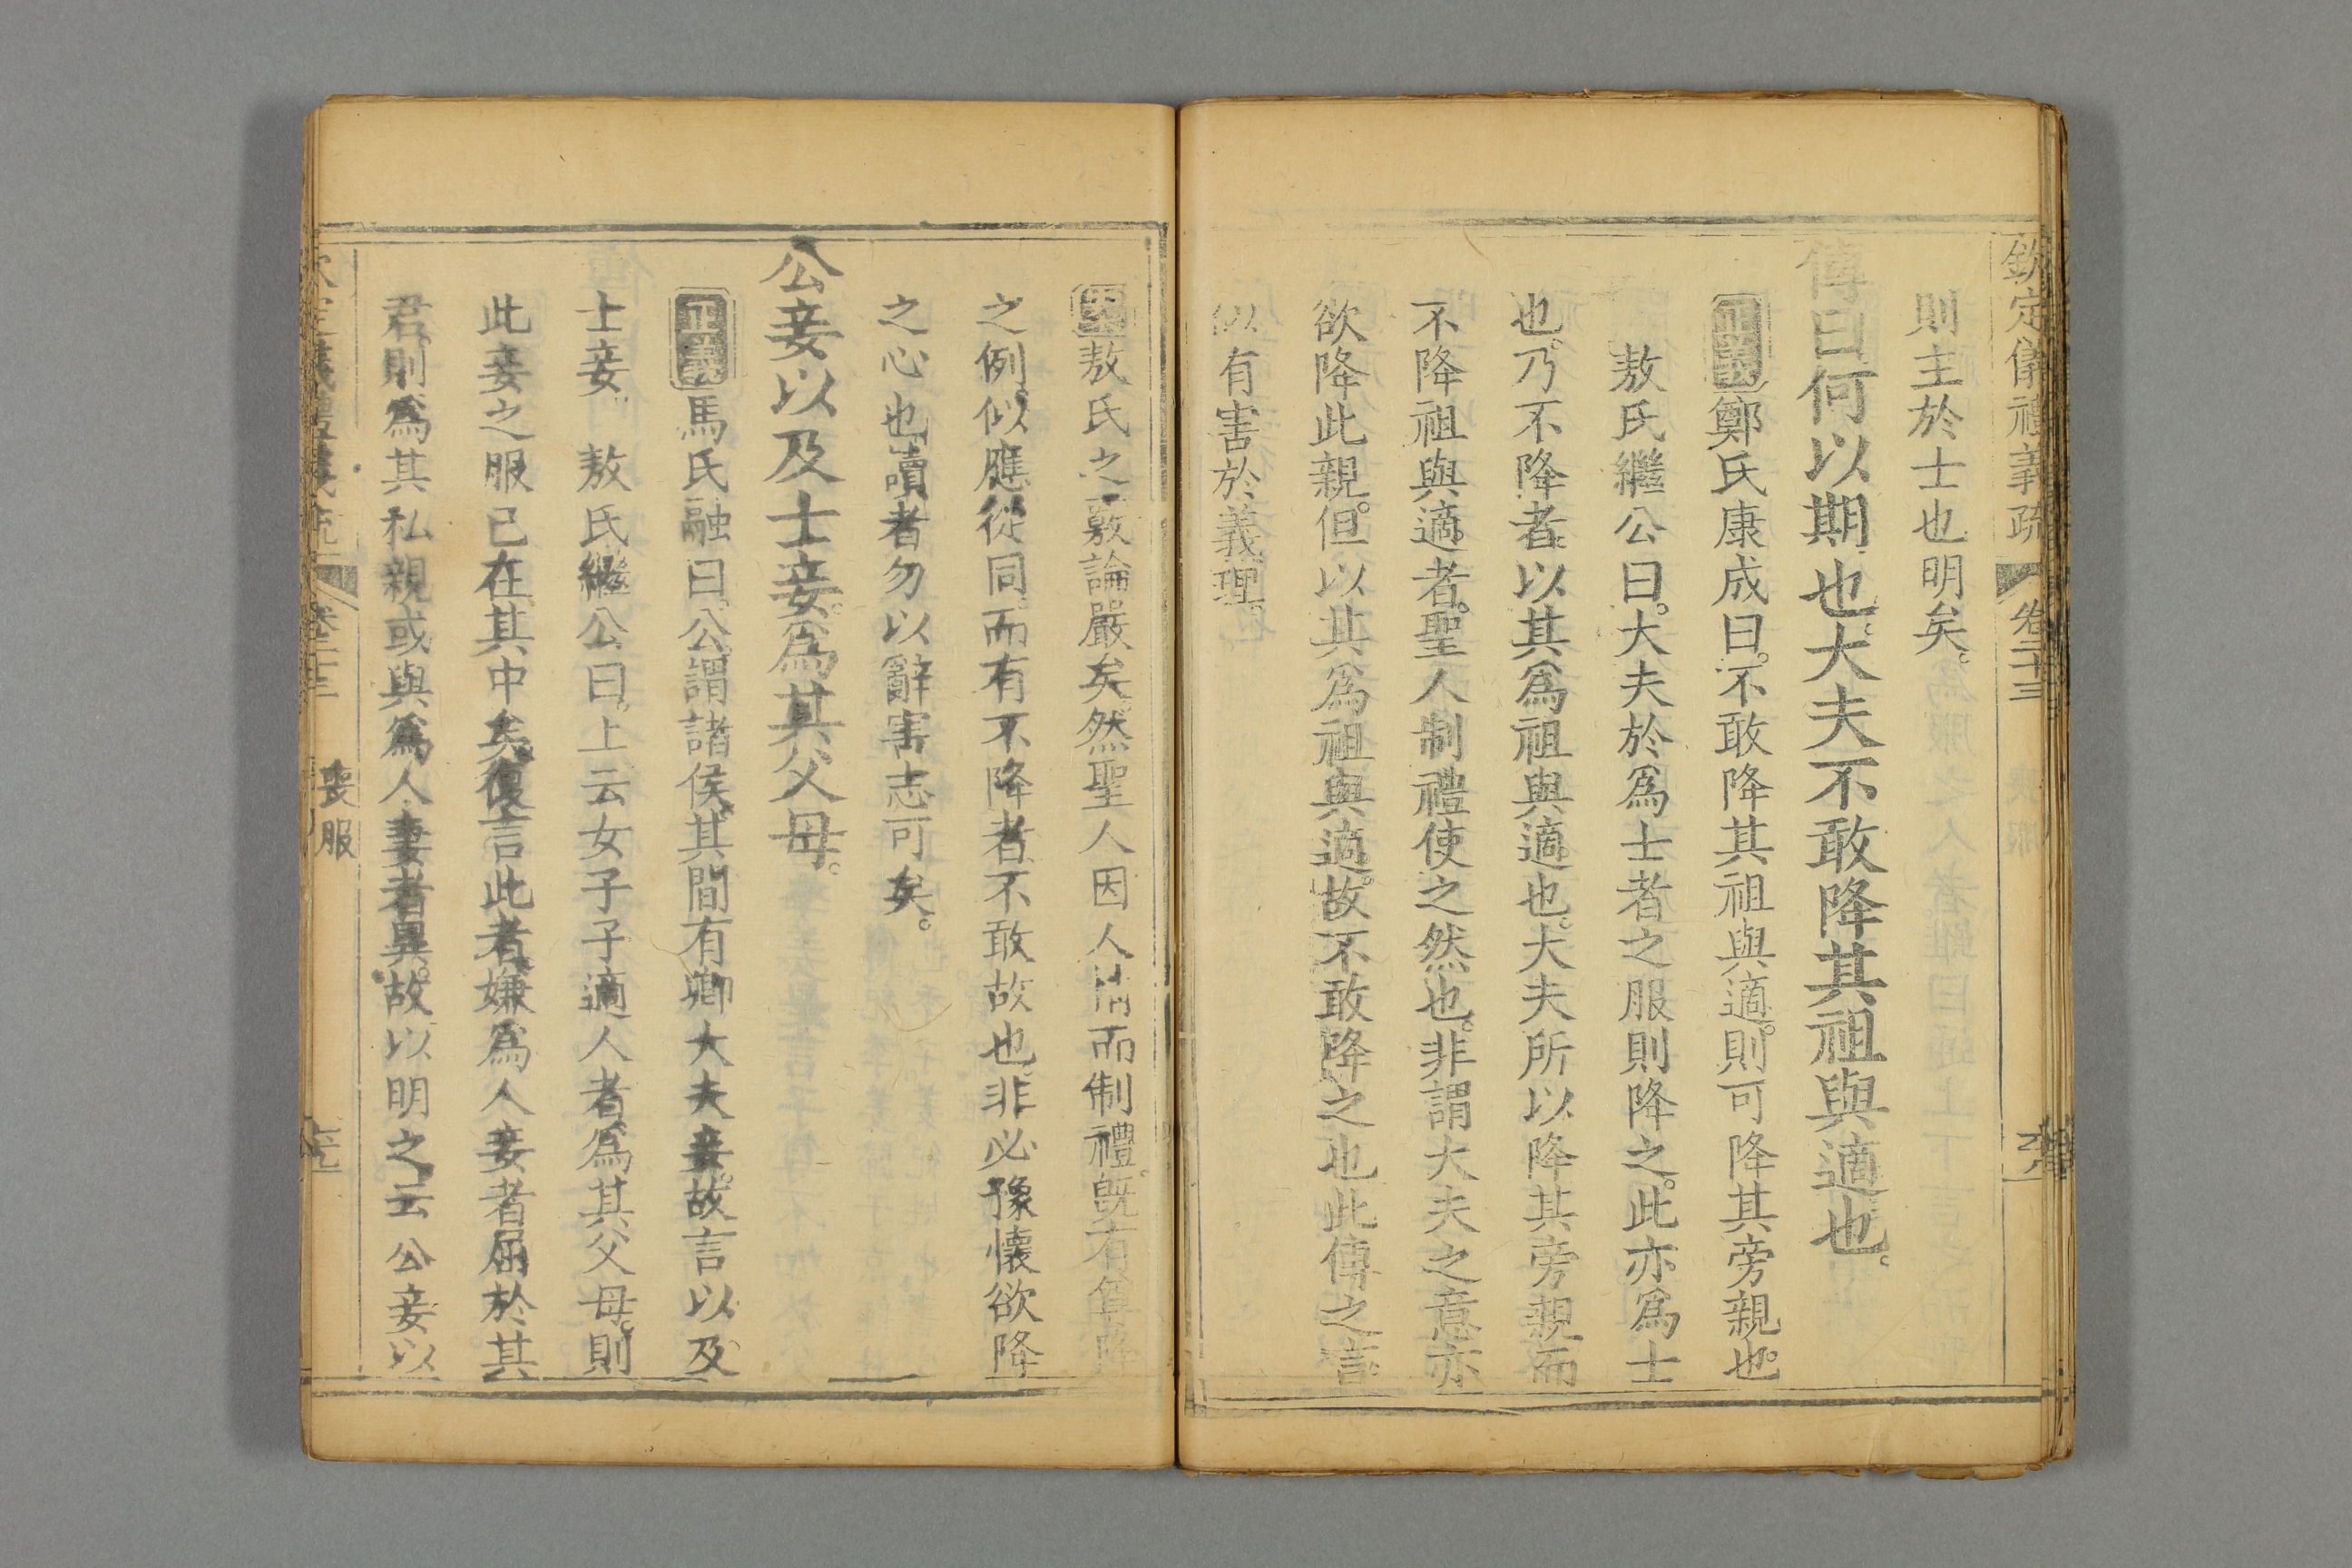 欽定儀禮義疏 卷二十三
則主於士也明矣。
傳曰何以期也。大夫不敢降其祖與適也。
正義 鄭氏康成曰。不敢降其祖與適。則可降其旁親也。
敖氏繼公曰。大夫於爲士者之服則降之。此亦爲士
也。乃不降者。以其爲祖與適也。大夫所以降其旁親而
不降祖與適者。聖人制禮使之然也。非謂大夫之意亦
欲降此親。但以其爲祖與適。故不敢降之也。此傳之言
似有害於義理。
敖氏之覈論嚴矣。然聖人因人情而制禮。旣有尊降
之例。似應從同。而有不降者。不敢故也。非必豫懷欲降
之心也。讀者勿以辭害志可矣。
公妾以及士妾。爲其父母。
正義 馬氏融曰。公謂諸侯。其間有卿大夫妾。故言以及
士妾。 敖氏繼公曰。上云女子子適人者。爲其父母。則
此妾之服已在其中矣。復言此者。嫌爲人妾者屈於其
君。則爲其私親或與爲人妻者異。故以明之云公妾以
喪服